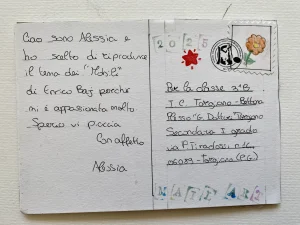 Ciao sono Alissia e
ho scelto di riprodurre
il tema dei "Mobili"
di Enrico Baj perché
mi è appassionata molto.
Spero vi piaccia
Con affetto
Alissia
2025
Per la classe 3ªB
I.C. Torgiano - Bettona
Plesso "G. Dottori" Torgiano
Secondaria I grado
via P. Tiradossi, n.
06089 - Torgiano (PG)
MAIL ART